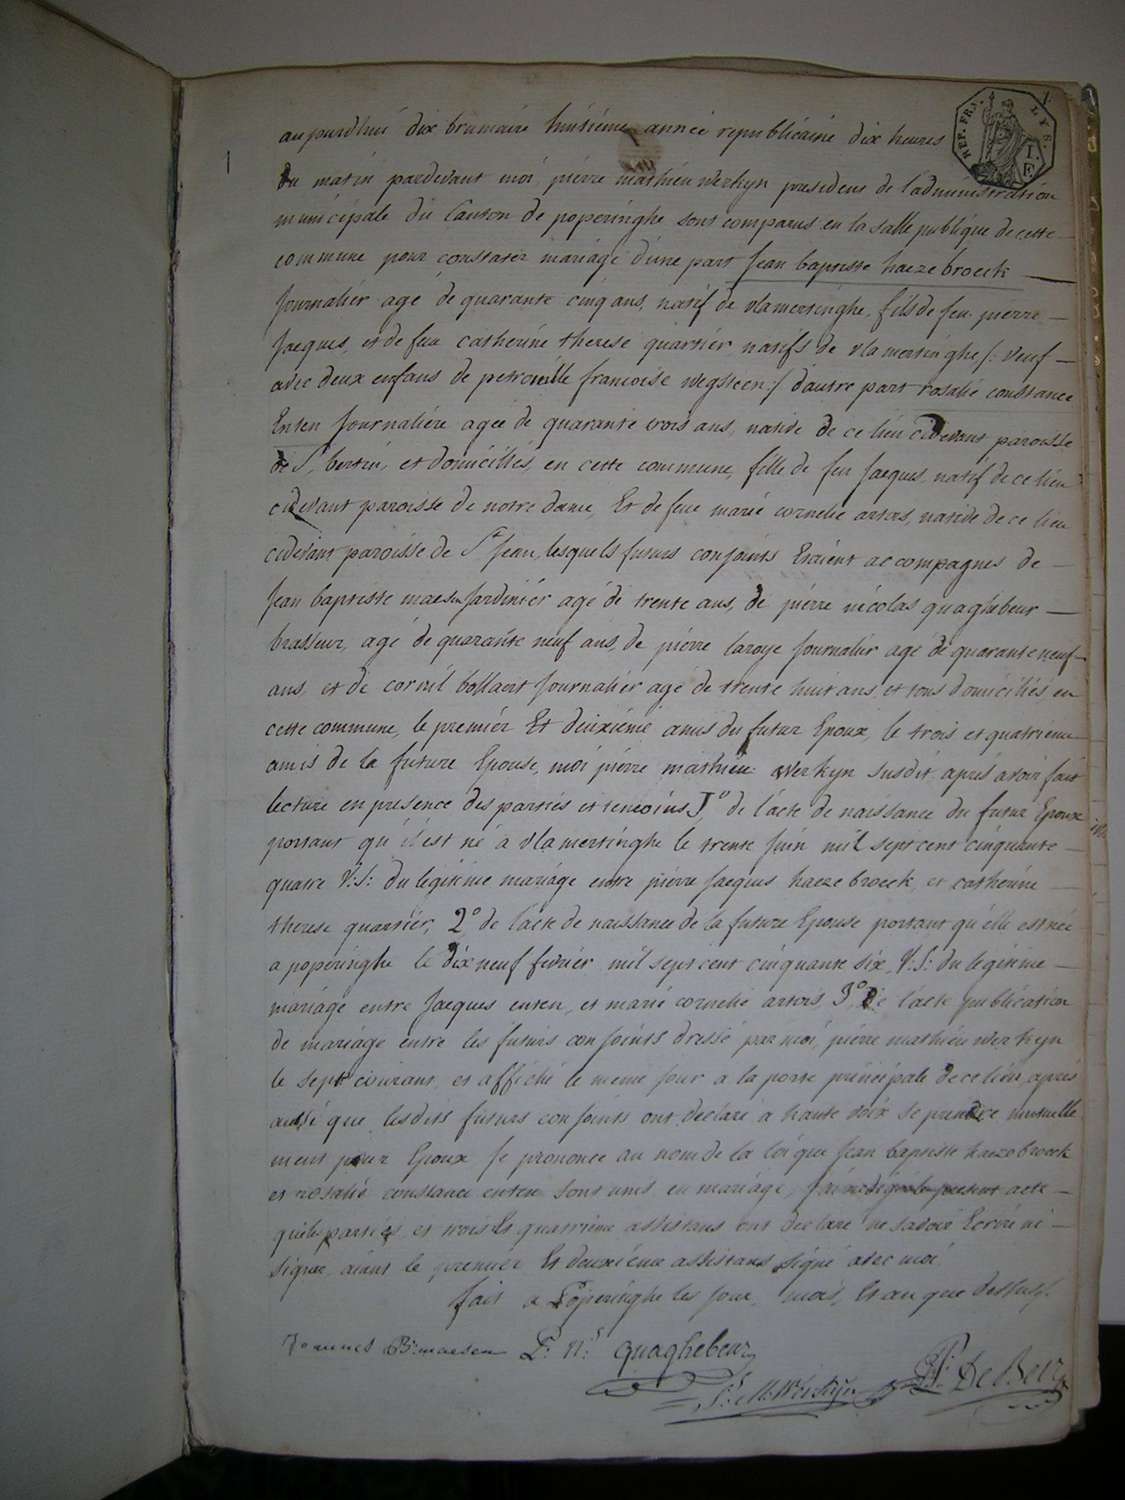 REP. FRA. LYS.
I. F.
1
aujourdhui dix brumaire huitiéme année republicaine dix heures
du matin pardevant moi, pierre mathieu Werkyn president de l'administration
municipale du Canton de poperinghe sont comparus en la salle publique de cette
commune pour constater mariage d'une part Jean baptiste haezebroeck
Journalier agé de quarante cinq ans, natif de vlamertinghe, fils de feu pierre
Jacques, et de feu catherine therese quartier natifs de vlamertinghe /: veuf
avec deux enfans de petronille francoise wegsteen :/ d'autre part rosalie constance
Enten Journaliére agée de quarante trois ans, native de ce lieu cidevant paroisse
de St. bertin, et domicilies, en cette commune, fille de feu Jacques, natif de ce lieu
cidevant paroisse de notre dame, Et de feue marie cornelie artois, native de ce lieu
cidevant paroisse de St Jean, lesquels futurs conjoints Etaient accompagnes de
Jean baptiste maesen Jardinier agé de trente ans, de pierre nicolas quaghebeur
brasseur, agé de quarante neuf ans, de pierre laroye Journalier agé de quarante neuf
ans, et de cornil bollaert Journalier agé de trente huit ans, et tous domiciliés, en
cette commune, le premier Et deuxiéme amis du futur Epoux, le trois et quatrieme
amis de la future Epouse, moi pierre mathieu Werkyn susdit, aprés avoir fait
lecture en presence des parties et temoins 1o de l'acte de naissance du futur Epoux
portant qu'il est né a vlamertinghe le trente Juin mil sept cent cinquante
quatre V:S: du legitime mariage entre pierre Jacques haezebroeck, et catherine
therese quartier, 2o de l'acte de naissance de la future Epouse portant qu'elle est née
a poperinghe le dix neuf fevrier mil sept cent cinquante six, V:S: du legitime
mariage entre Jacques enten, et marie cornelie artois, 3o de l'acte publication
de mariage entre les futurs conjoints dressé par moi, pierre mathieu Werkyn
le sept courant, et affiché le meme jour a la porte principale de ce lieu, aprés
aussi que lesdits futurs conjoints ont declaré a haute voix se prendre mutuelle
ment pour Epoux Je prononce au nom de la loi que Jean baptiste haezebroeck
et rosalie constance enten sont unis en mariage, J'ai redigé le present acte
que les parties, et trois Et quatrieme assistans ont declaré ne savoir Ecrire ni
signer, aiant le premier Et deuxieme assistans signé avec moi
fait a Poperinghe les jour, mois, Et an que dessus/.
Joannes B: maesen P: N:s quaghebeur
P: M: Werkyn P: De Beir